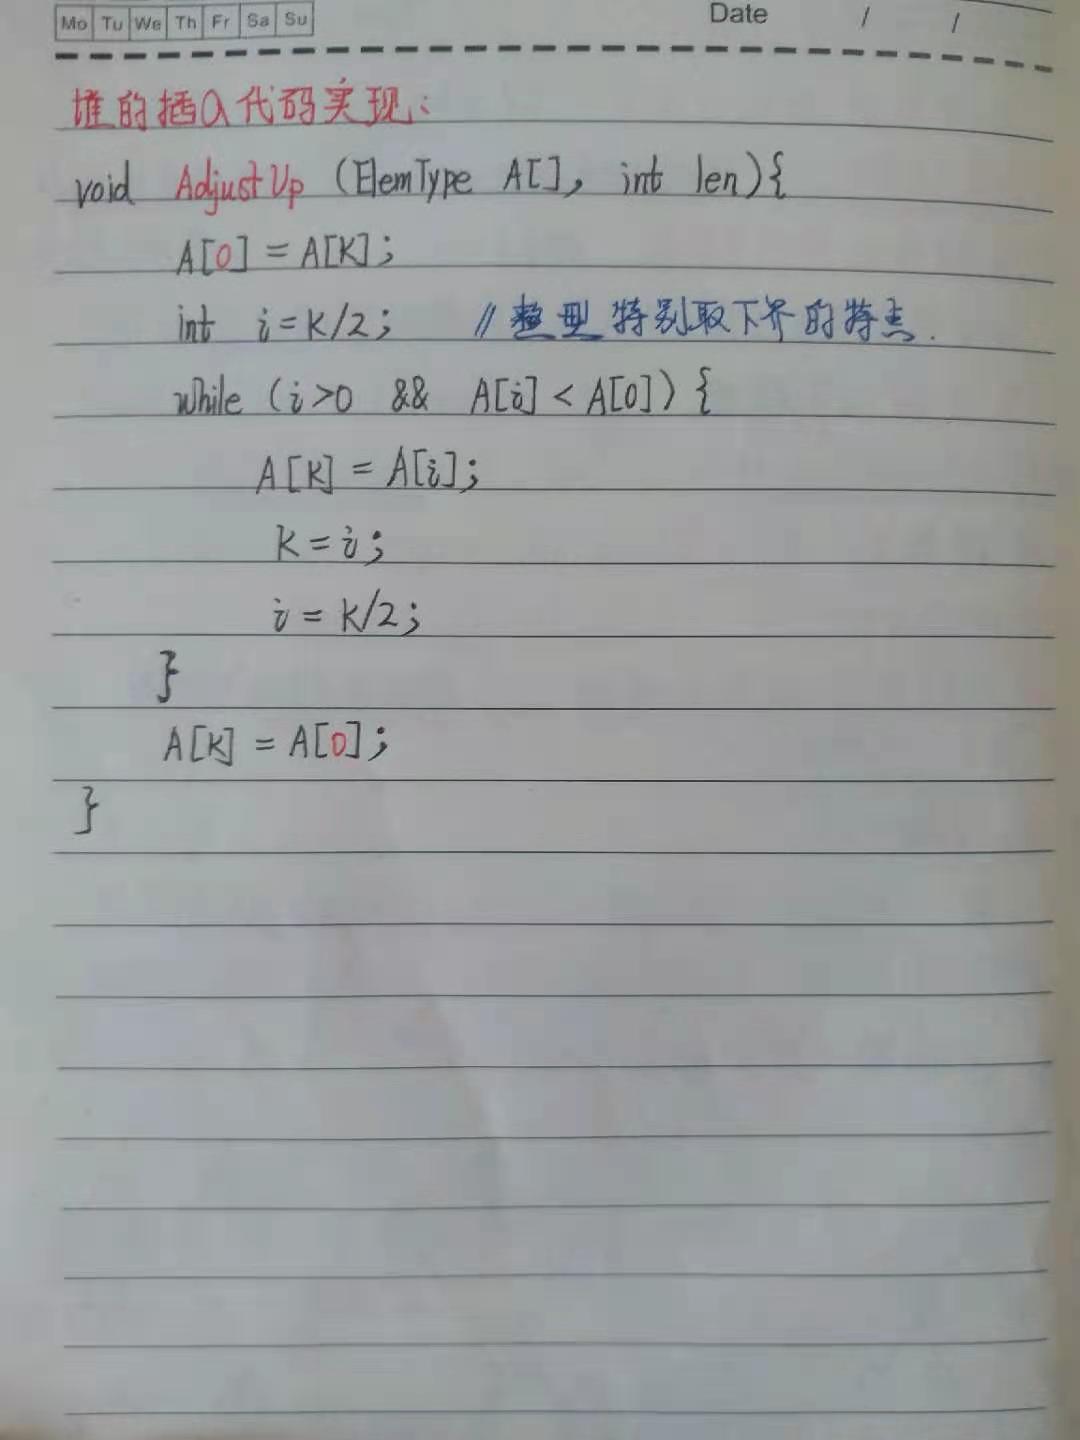 Mo Tu We Th Fr Sa Su Date / /
堆的插入代码实现:
void AdjustUp (ElemType A[], int len){
A[0] = A[K];
int i = K/2; // 整型特别取下界的特点.
while (i>0 && A[i] < A[0]) {
A[K] = A[i];
K = i;
i = K/2;
}
A[K] = A[0];
}